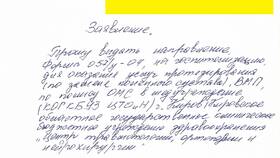 Заявление.
Прошу выдать направление,
форма 057/у-04, на госпитализацию,
для оказания услуг протезирования
(по замене коленного сустава), ВМП,
по полису ОМС в медучреждение
(КОГКБУЗ "ЦТОиН") г. Киров (Кировское
областное государственное клиническое
бюджетное учреждение здравоохранения
"Центр травматологии, ортопедии и
нейрохирургии"